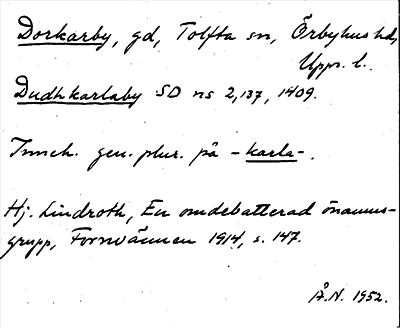 Dorkarby, gd, Tolfta sn, Örbyhus hd,
Upps. l.
Dudhkarlaby SD ns 2,137, 1409.
Inneh. gen. plur. på -karla-.
Hj. Lindroth, En omdebatterad önamns-
grupp, Fornvännen 1914, s. 147.
Å.N. 1952.